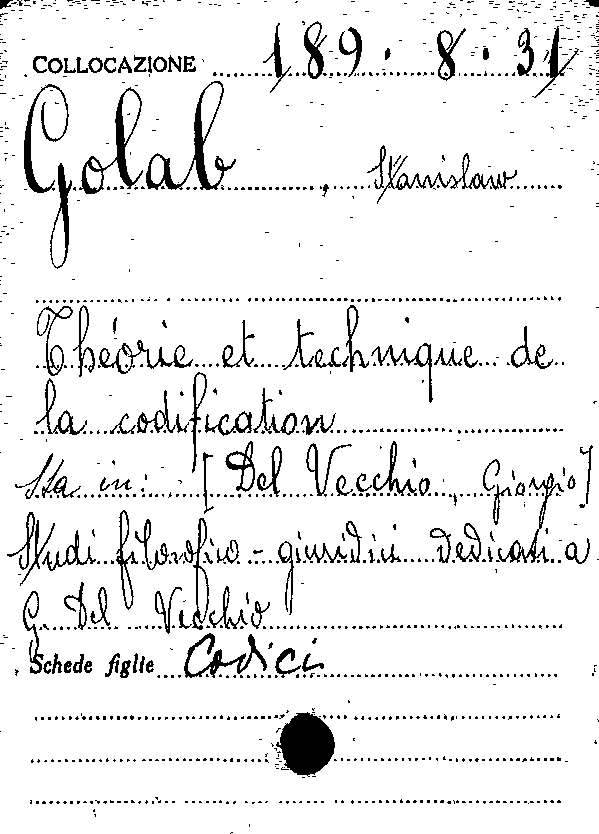 COLLOCAZIONE 189.8.31
Golab, Stanislaw
Théorie et technique de
la codification
Sta in: [Del Vecchio, Giorgio]
Studi filosofico-giuridici dedicati a
G. Del Vecchio
Schede figlie Codici